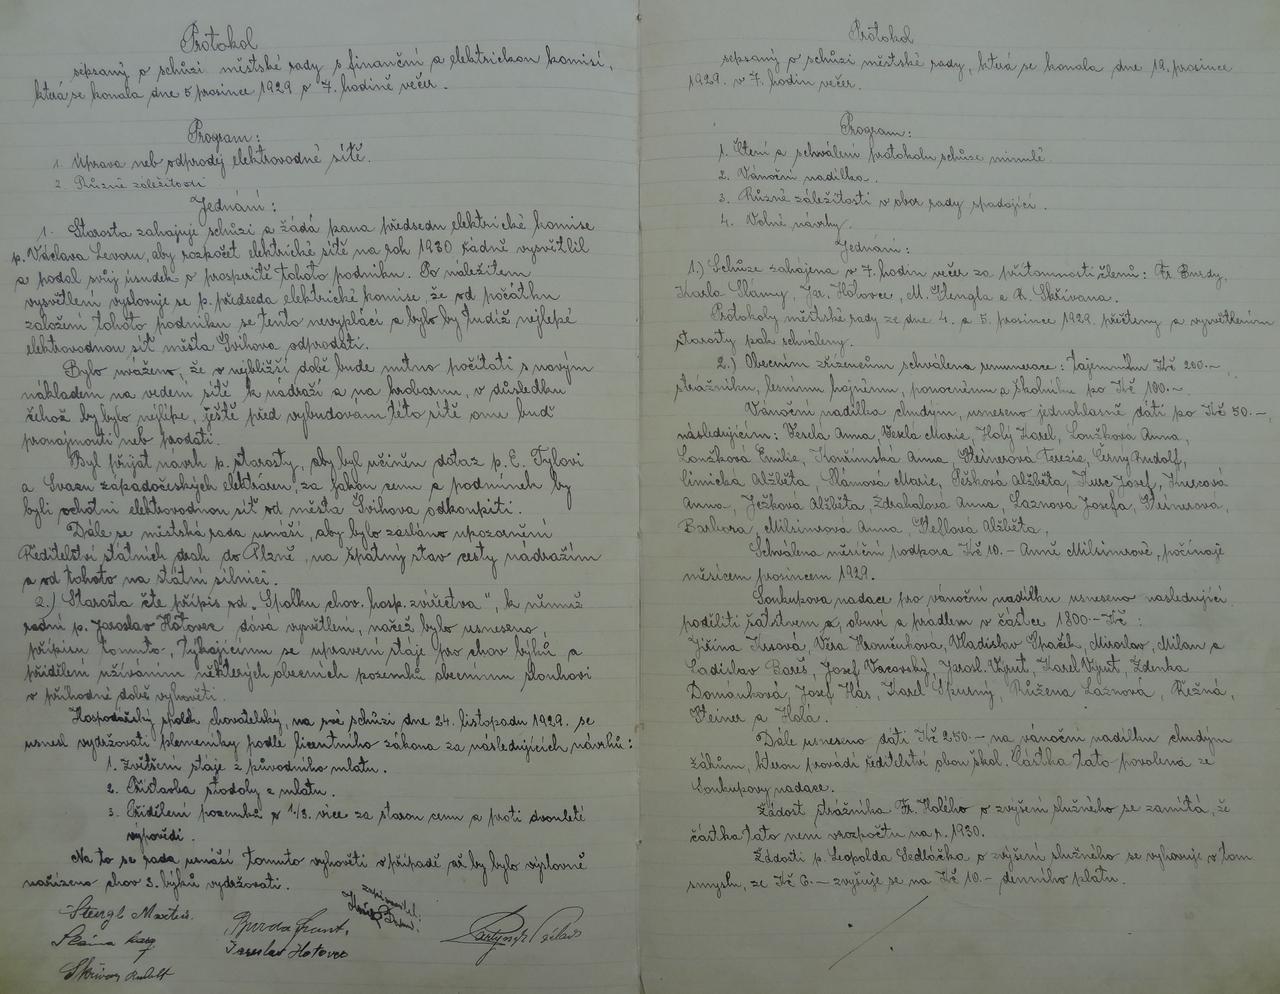 Protokol
sepsaný o schůzi městské rady s finanční a elektrickou komisí,
která se konala dne 5 prosince 1929 o 7. hodině večer.
Program:
1. Úprava neb odprodej elektrovodné sítě.
2. Různé záležitosti
Jednání:
1. Starosta zahajuje schůzi a žádá pana předsedu elektrické komise
p. Václava Levoru, aby rozpočet elektrické sítě na rok 1930 řádně vysvětlil
a podal svůj úsudek o prosperitě tohoto podniku. Po náležitém
vysvětlení vyslovuje se p. předseda elektrické komise, že od počátku
založení tohoto podniku se tento nevyplácí a bylo by tudíž nejlépe
elektrovodnou síť města Švihova odprodati.
Bylo uváženo, že v nejbližší době bude nutno počítati s novým
nákladem na vedení sítě k nádraží a na krobovnu, v důsledku
čehož by bylo nejlépe, ještě před vybudovam této sítě onu buď
pronajmouti neb prodati.
Byl přijat návrh p. starosty, aby byl učiněn dotaz p. E. Tylovi
a Svazu západočeských elektráren, za jakou cenu a podmínek by
byli ochotni elektrovodnou síť od města Švihova odkoupiti.
Dále se městská rada usnáší, aby bylo zasláno upozornění
Ředitelství státních drah do Plzně, na špatný stav cesty nádražím
a od tohoto na státní silnici.
2.) Starosta čte přípis od „Spolku chov. hosp. zvířectva", k němuž
radní p. Jaroslav Hotovec dává vysvětlení, načež bylo usneseno
přípisu tomuto, týkajícímu se upravení stáje pro chov býků a
přidělení užíváním některých obecních pozemků obecnímu slouhovi
v příhodné době vyhověti.
Hospodářský spolek chovatelský, na své schůzi dne 24. listopadu 1929. se
usnesl vydržovati plemeníky podle licentního zákona za následujících návrhů:
1. Zvětšení stáje z původního mlatu.
2. Přístavba stodoly z mlatu.
3. Přidělení pozemků o 1/3. více za starou cenu a proti dvouleté
výpovědi.
Na to se rada usnáší tomuto vyhověti v případě až by bylo výslovně
nařízeno chov 3. býků vydržovati.
zapisovatel:
Stengl Martin.
Burda Frant.
Sláma
Jaroslav Hotovec
Skřivan Rudolf
Protokol
sepsaný o schůzi městské rady, která se konala dne 19. prosince
1929. v 7. hodin večer.
Program:
1. Čtení a schválení protokolu schůze minulé.
2. Vánoční nadílka.
3. Různé záležitosti v obor rady spadající.
4. Volné návrhy.
Jednání:
1.) Schůze zahájena v 7. hodin večer za přítomnosti členů: Fr. Burdy,
Karla Slámy, Jar. Hotovce, M. Stengla a R. Skřivana.
Protokoly městské rady ze dne 4. a 5. prosince 1929. přečteny a vysvětlením
starosty pak schváleny.
2.) Obecním zřízencům schválena remunerace: tajemníku Kč 200.-,
strážníku, lesnímu hajnému, ponocnému a školníku po Kč 100.-
Vánoční nadílka chudým, usneseno jednohlasně dáti po Kč 50.-,
následujícím: Veselá Anna, Veselá Marie, Holý Karel, Loužková Anna,
Loužková Emilie, Kouřimská Anna, Steinerová Terezie, Černý Rudolf,
Alžběta, Slámová Marie, Pešková Alžběta, Kusc Josef,
Anna, Ježková Alžběta, Zdrahalová Anna, Laznova Josefa, Steinerová,
Barbora, Milsimrová Anna, Steflová Alžběta,
Schválena měsíční podpora Kč 10.- Anně Milsimrové, počínaje
měsícem prosincem 1929.
Soukupova nadace pro vánoční nadílku usneseno následující
poděliti šatstvem a, obuví a prádlem v částce 1300.- Kč:
Jiřina Kusová, Věra Hromčuková, Vladislav Spaček, Miroslav, Milan a
Ladislav Bareš, Josef Vacovský, Jarosl. Vyrut, Karel Vyrut, Zdenka
Dománková, Josef Hás, Karel Opusný, Růžena Laznová, Režná,
Steiner a Holá.
Dále usneseno dáti Kč 250.- na vánoční nadílku chudým
žákům, kterou provádí ředitelství obou škol. Částka tato povolena ze
Soukupovy nadace.
Žádost strážníka Fr. Holého o zvýšení služného se zamítá, že
částka tato není v rozpočtu na r. 1930.
Žádosti p. Leopolda Sedláčka o zvýšení služného se vyhovuje v tom
smyslu, ze Kč 6.- zvyšuje se na Kč 10.- denního platu.